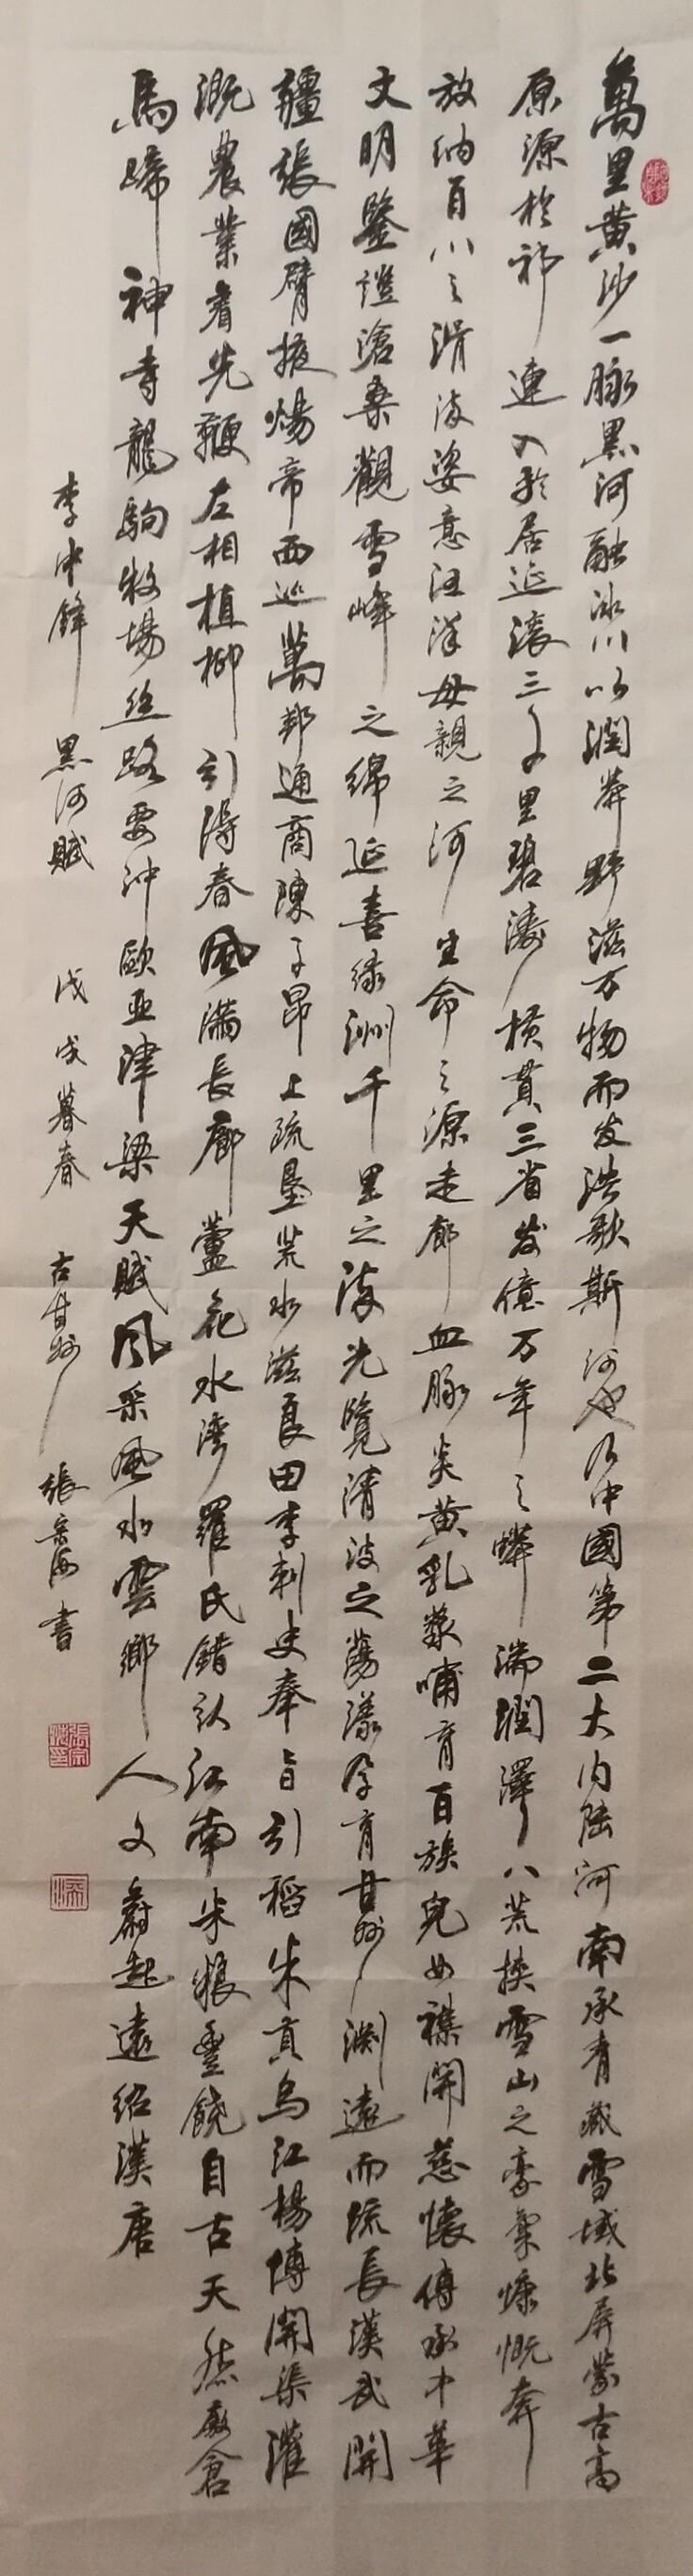 萬里黄沙一脉黑河融冰川以潤莽野滋万物而发浩歌斯河也乃中國第二大内陆河南承青藏雪域北屏蒙古高
原源於祁連入於居延滚三千里碧濤横貫三省发億万年之粼湍潤澤八荒挟雪山之豪氣慷慨奔
放纳百川之涓流姿意汪洋母親之河生命之源走廊血脉炎黄乳漿哺育百族兒女襟開慈懷傅承中華
文明鑒證滄桑觀雪峰之綿延喜绿洲千里之流光覽清波之蕩漾孕育甘州渊遠而流長漢武開
疆張國臂掖煬帝西巡萬邦通商陳子昂上疏垦荒水滋良田李刺史奉旨引稻米貢烏江楊博開渠灌
溉農業着先鞭左相植柳引得春風满長廊蘆花水灣羅氏錯认江南米粮豐饒自古天然廒倉
馬蹄神寺龍駒牧場丝路要冲歐亚津梁天赋风采風水雲鄉人文蔚起遠绍漢唐
李中鋒 黑河赋 戊戌暮春 古甘州 張宗海書